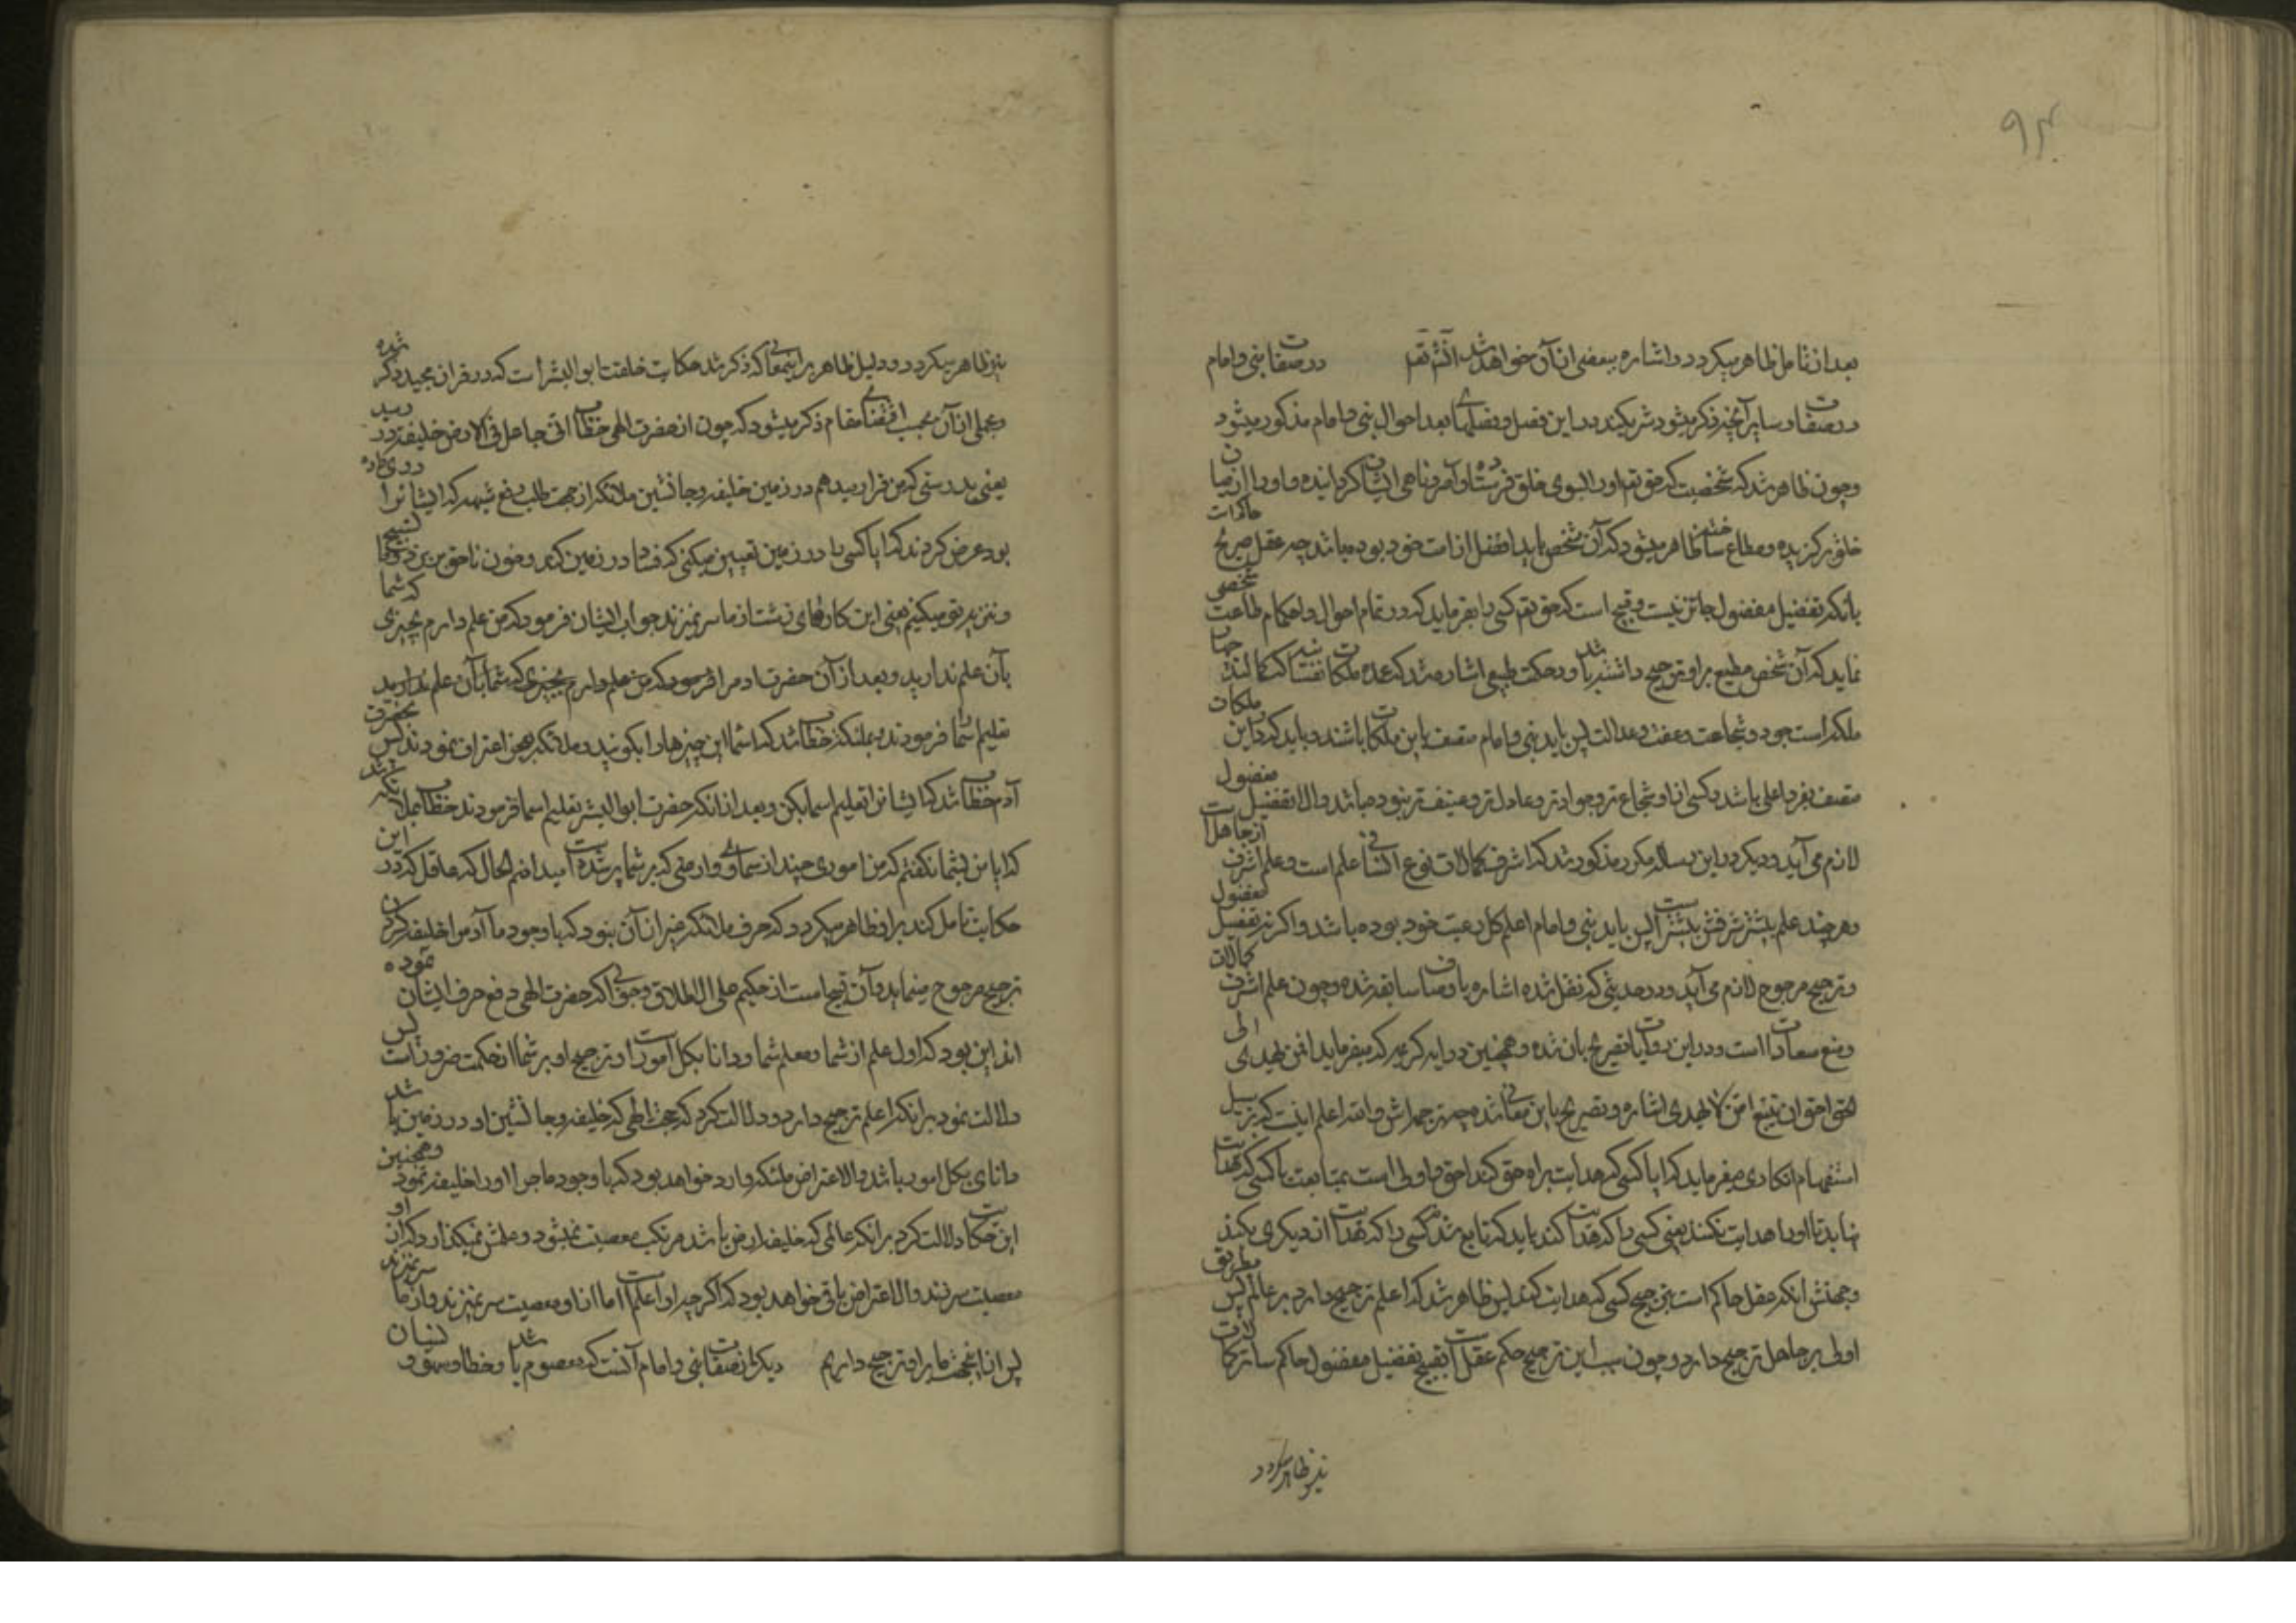 ۹۴
بعد از تامل ظاهر میگردد و اشاره ببعضی از آن خواهد شد انشٓ تعٓ در صفات نبی و امام
در صفات و سایر آنچه ذکر میشود شریکند در این فصل و فصلهای بعد احوال نبی و امام مذکور میشود
و چون ظاهر شد که شخصیت که حق تعم او را بسوی خلق فرستاده و آمر و ناهی ایشان گردانیده و او را از میان
خلق برگزیده و مطاع ساخته ظاهر میشود که آن شخص باید افضل از امت خود بوده باشد چه عقل صریح حاکم است
بانکه تفضیل مفضول جائز نیست و قبیح است که حق تعم کسی را بفرماید که در تمام احوال و احکام طاعت شخصی
نماید که آن شخص مطیع بر او ترجیح داشته باشد و در حکمت طبیعی اشاره شد که عمده ملکات نفسانیه که کمالند چهار
ملکه است جود و شجاعت و عفت و عدالت پس باید نبی و امام متصف باین ملکات باشند و باید که در این ملکات
متصف بفرد اعلی باشد و کسی از او شجاع تر و جوادتر و عادل تر و عفیف تر نبوده باشد والا تفضیل مفضول
لازم می آید و دیگر در این رساله مکرر مذکور شد که اشرف کمالات نوع انسانی علم است و علم اشرف از جاهل است
و هر چند علم بیشتر شرفش بیشتر است پس باید نبی و امام اعلم کل رعیت خود بوده باشد و اگر نه تفضیل مفضول
و ترجیح مرجوح لازم می آید و در حدیثی که نقل شده اشاره باوصاف سابقه شده و چون علم اشرف کمالات
و منبع سعادات است و در این روایات تصریح بان شده و همچنین در ایه کریمه که میفرماید افمن یهدی الی
الحق احق ان یتبع امن لا یهدی اشاره و تصریح باین معانی شده چه ترجمه اش والله اعلم اینست که بر سبیل
استفهام انکاری میفرماید که ایا کسی که هدایت براه حق کند احق و اولی است بمتابعت یا کسی که هدایت
نیابد تا او را هدایت نکنند یعنی کسی را که هدایت کند باید که تابع شد کسی را که هدایت از دیگری بکند
و جهتش انکه عقل حاکم است بترجیح کسی که هدایت کند پس ظاهر شد که اعلم ترجیح دارد بر عالم پس بطریق
اولی بر جاهل ترجیح دارد و چون سبب این ترجیح حکم عقل است بقبح تفضیل مفضول حاکم سائر کمالات
نیز ظاهر میگردد
نیز ظاهر میگردد و دلیل ظاهر بر اینمعانی که ذکر شد حکایت خلقت ابو البشر است که در قران مجید ذکر شده
و مجملی از آن بحسب اقتضای مقام ذکر میشود که چون از حضرت الهی خطاب انی جاعل فی الارض خلیفة در رسید
یعنی بدرستی که من قرار میدهم در زمین خلیفه و جانشین ملائکه از جهت طلب دفع شبهه که ایشانرا روی داده
بود عرض کردند که ایا کسی را در زمین تعیین میکنی که فساد در زمین کند و خون ناحق بریزد و ما تسبیح
و تنزیه تو میکنیم یعنی این کارهای زشت از ما سر نمیزند جواب ایشان فرمود که من علم دارم بچیزی که شما
بآن علم ندارید و بعد از آن حضرت ادم را فرمود که من علم دارم بچیزی که شما بآن علم ندارید
تعلیم اسما فرمودند و بملائکه خطاب شد که اسما این چیزها را بگوئید و ملائکه بعجز اعتراف نمودند پس بحضرت
آدم خطاب شد که ایشانرا تعلیم اسما بکن و بعد از انکه حضرت ابو البشر تعلیم اسما فرمودند خطاب بملائکه شد
که ایا من بشما نگفتم که من اموری چند از سماوی و ارضی که بر شما پوشیده است میدانم الحال که عاقل که در این
حکایت تامل کند بر او ظاهر میگردد که حرف ملائکه غیر از آن نبود که با وجود ما آدم را خلیفه کردن
ترجیح مرجوح مینماید و آن قبیح است از حکیم علی الاطلاق و جوابی که حضرت الهی دفع حرف ایشان نموده
اند این بود که او اعلم از شما و معلم شما و دانا بکل امور است و ترجیح او بر شما از حکمت ضرور است پس
دلالت نمود بر انکه اعلم ترجیح دارد و دلالت کرد که حجت الهی که خلیفه و جانشین او در زمین باشد
دانای بکل امور باشد والا اعتراض ملئکه وارد خواهد بود که با وجود ما چرا او را خلیفه نمود و همچنین
این حکایت دلالت کرد بر انکه عالمی که خلیفه ارض باشد مرتکب معصیت نمیشود و علمش نمیگذارد که از او
معصیت سر زند والا اعتراض باقی خواهد بود که اگر چه او اعلم است اما از او معصیت سر میزند و از ما سر نمیزند
پس از اینجهت ما بر او ترجیح داریم دیگر از صفات نبی و امام آنست که معصوم باشد و خطا و سهو و نسیان